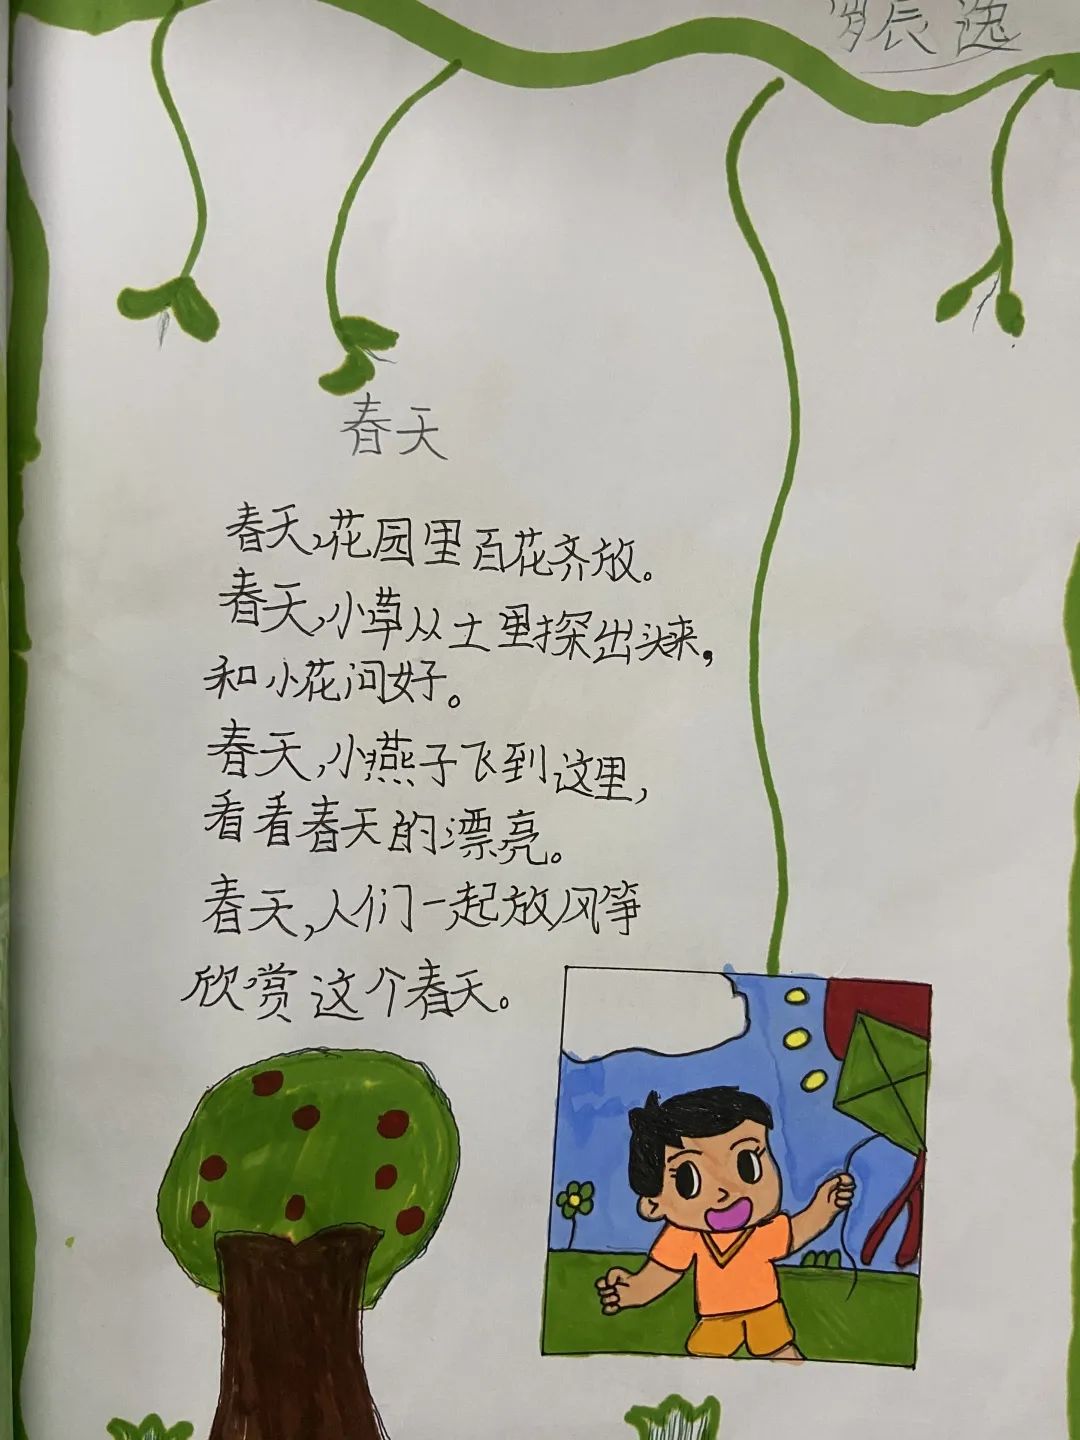 辰逸
春天
春天,花园里百花齐放。
春天,小草从土里探出头来,
和小花问好。
春天,小燕子飞到这里,
看看春天的漂亮。
春天,人们一起放风筝
欣赏这个春天。